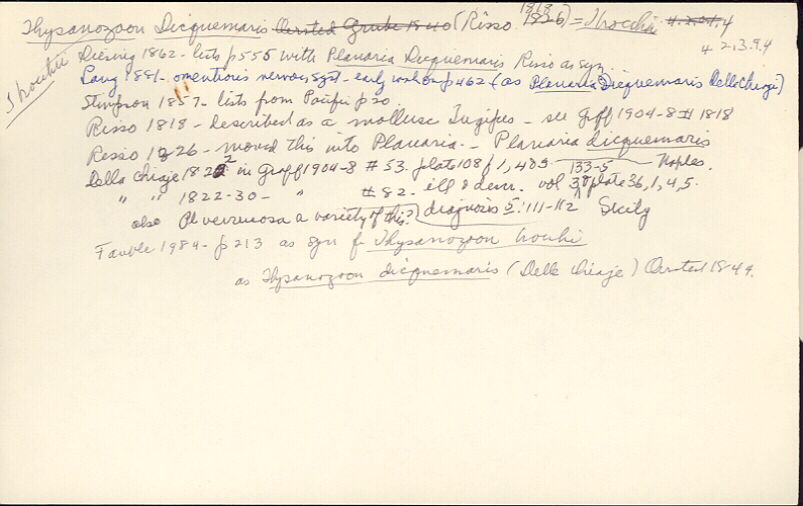 Thysanozoon Dicquemaris Oersted Grube 1840 (Risso 1818 1826) = T brocchii 4
4 2.3.9.4
T brocchii
Diesing 1862 - lists p 555 with Planaria Dicquemaris Risso as syn
Lang 1881 - mentions nervous syst - early work on p 462 (as Planaria Dicquemaris Delle Chiaje)
Stimpson 1857 - lists from Pacific p 20
Risso 1818 - described as a mollusc Tergipes - see Graff 1904-8 # 1818
Risso 1826 - moved this into Planaria. - Planaria dicquemaris
Della Chiaje 1822 in Graff 1904-8 # 53. plate 108 f 1, 4 or 5 133-5 Naples.
" " 1822-30 - " # 82. ill & descr. vol 3, plate 36, 1, 4, 5.
also Pl verrucosa a variety of this? diagnosis 5: 111-112 Sicily
Faubel 1984 - p 213 as syn for Thysanozoon brocchii
as Thysanozoon dicquemaris (Delle Chiaje) Oersted 1844.